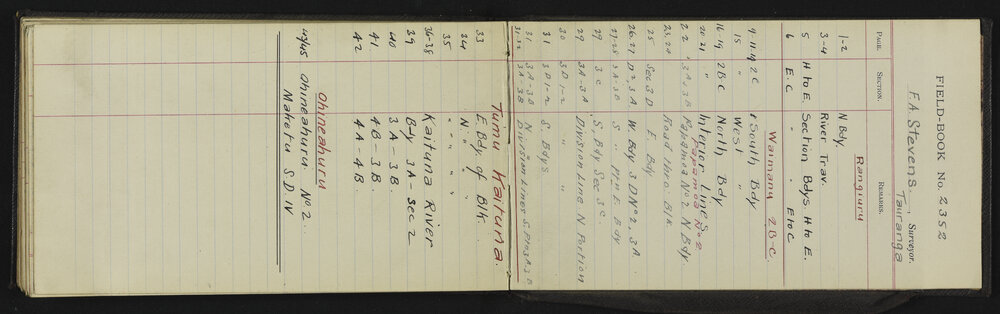 FIELD-BOOK No. 2352
F.A. Stevens, Surveyor.
Tauranga
PAGE. SECTION. REMARKS.
Rangiuru
1-2 N Bdy.
3-4 River Trav.
5 H to E Section Bdys. H to E.
6 E.C " " E to C
Waimanu 2B-C.
9-11-14 2C South Bdy
15 " West "
16-19 2B-C North Bdy
20-21 " Interior Lines
Papamoa No 2
2-2 3A, 3B Papamoa No 2 N Bdy.
23, 24 Road thro. Blk
25 Sec 3D E. Bdy
26-27 D2, 3A W. Bdy 3D No 2, 3A
27-28 3A, 3B S. Bdy
29 3C S. Bdy Sec 3C.
29 3A-3A Division Line N Portion
30 3D1-2 " "
31 3D1-2 S. Bdys
31 3A-3B N. "
31-32 3A-3B Division Lines
Tumu Kaituna.
33 E Bdy of Blk.
34 N " " "
35 " " " "
36-38 Kaituna River
39 Bdy 3A-Sec 2
40 3A-3B.
41 4B-3B.
42 4A-4B.
Ohineahuru
44/45 Ohineahuru No 2
Maketu SD IV